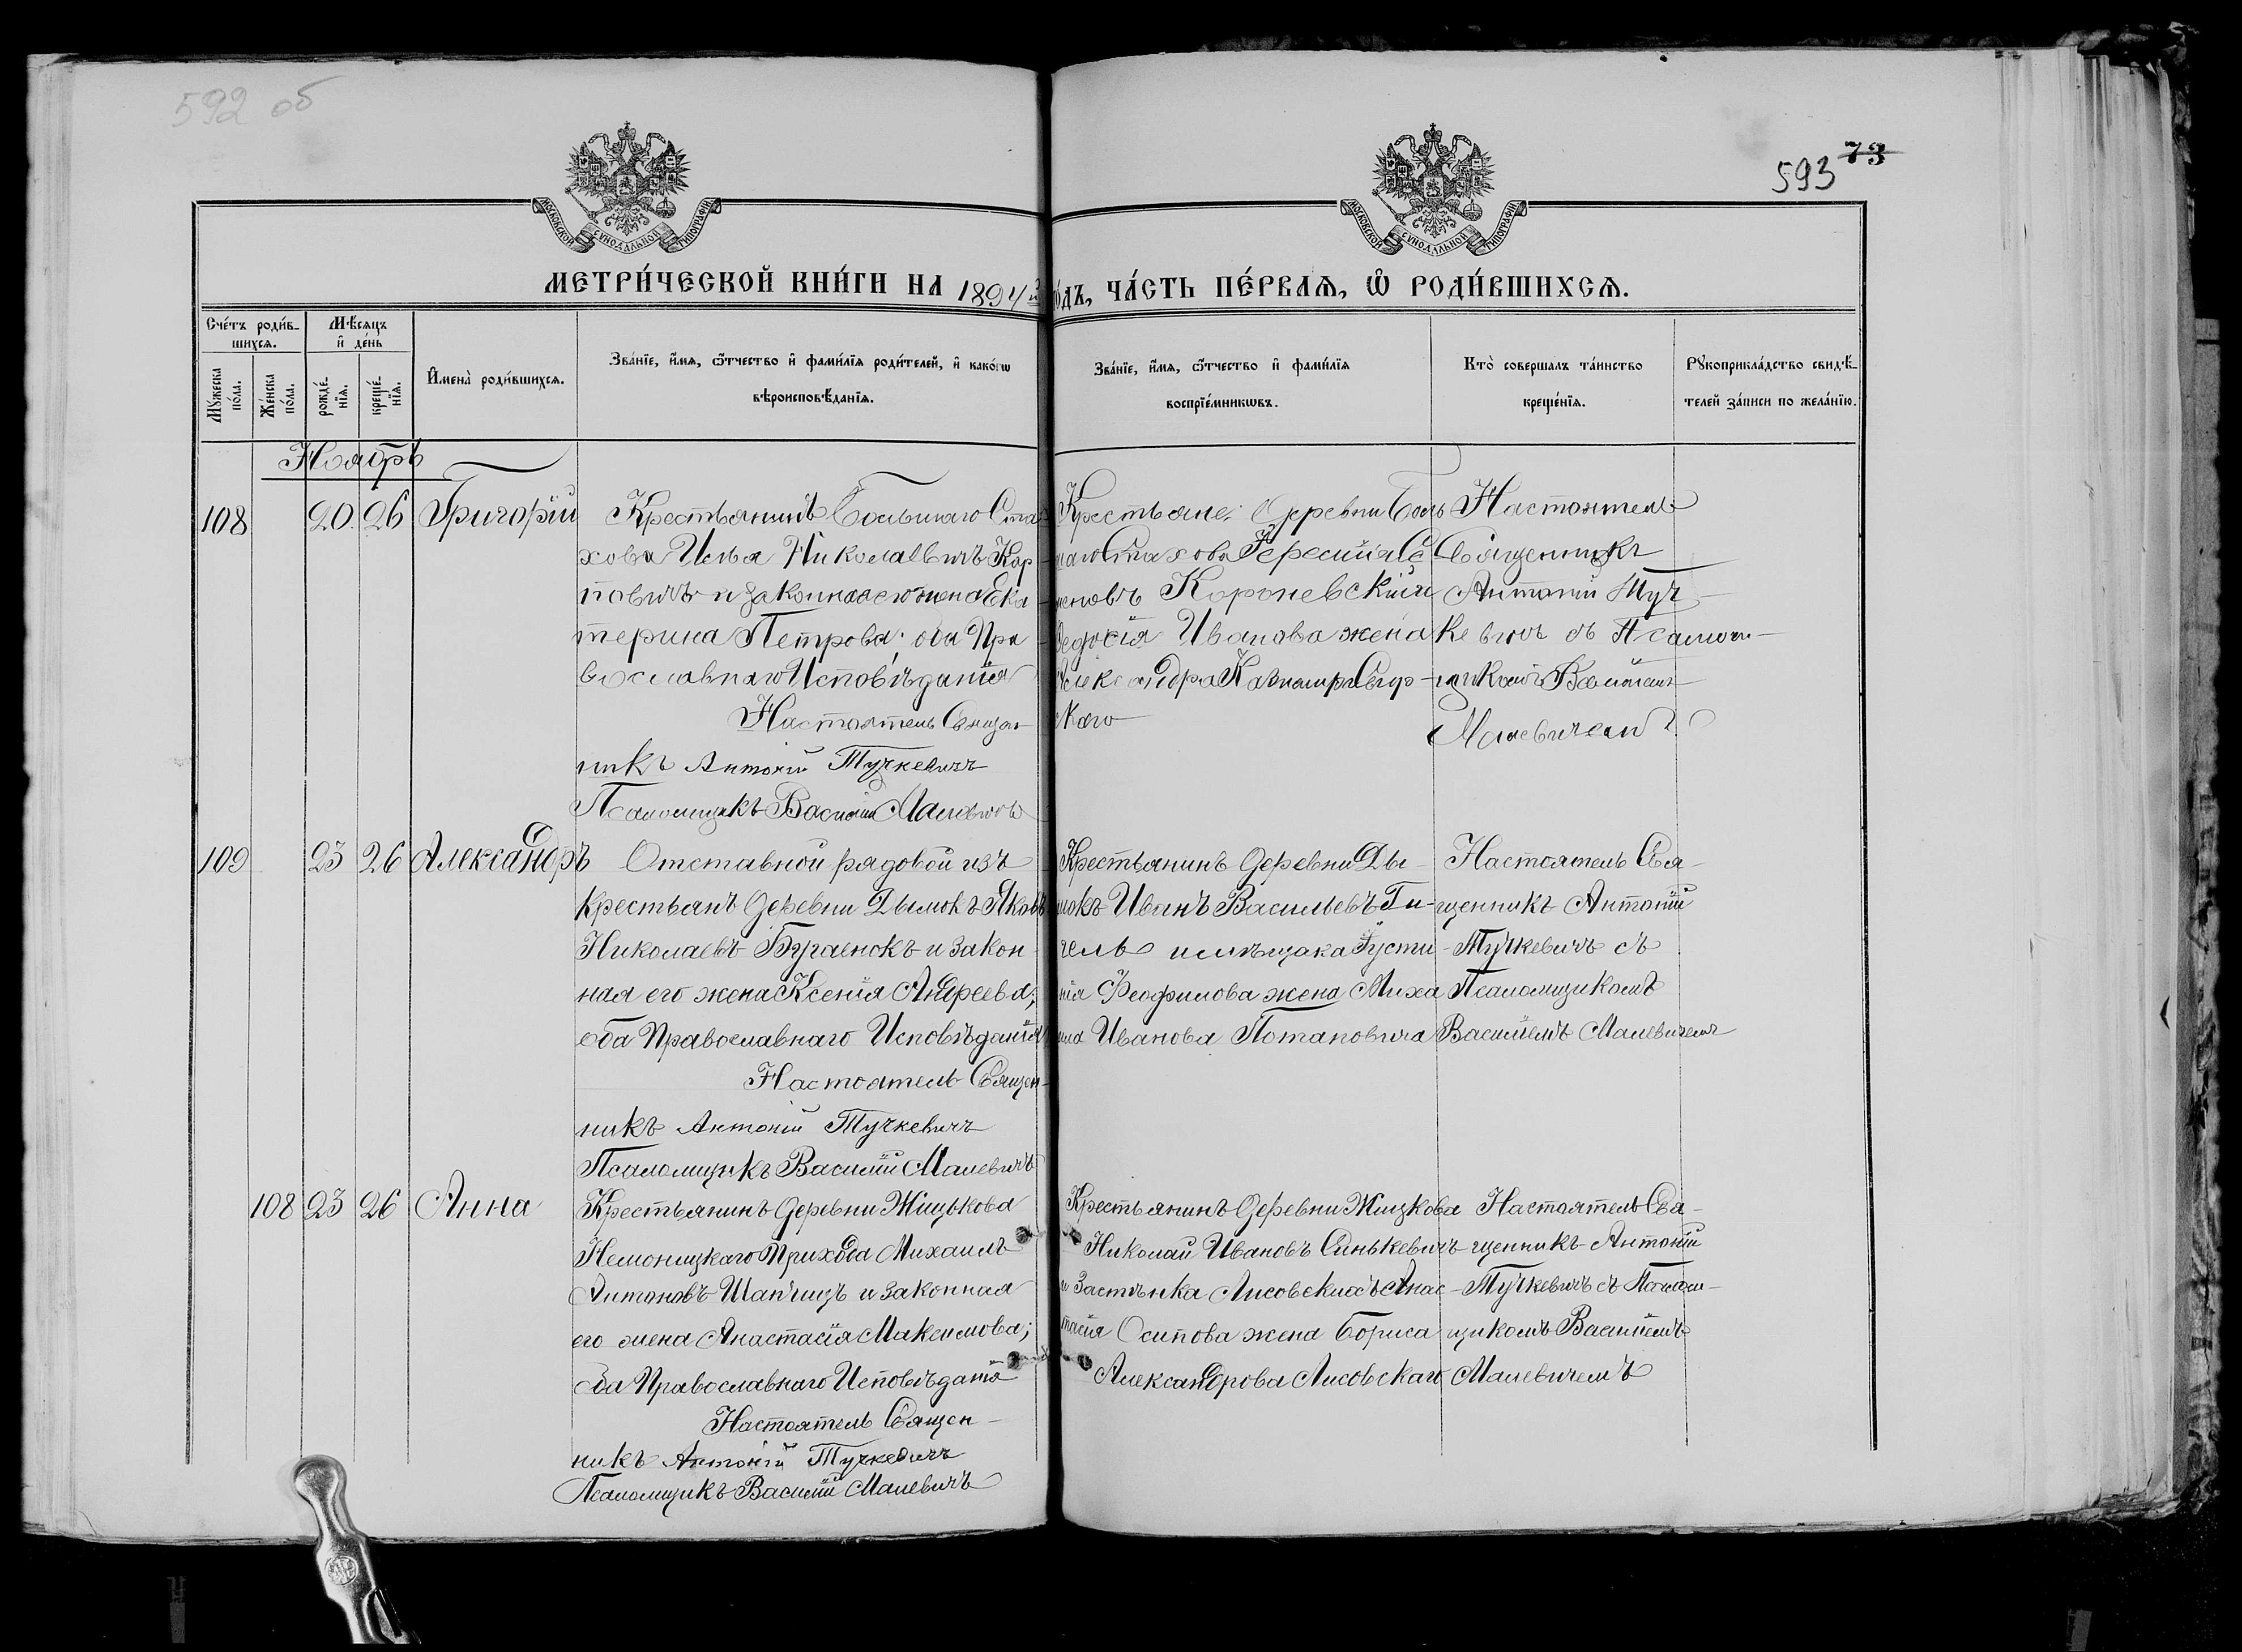 592 об
593 73
МОСКОВСКОЙ СѴНОДАЛЬНОЙ ТИПОГРАФІИ
МОСКОВСКОЙ СѴНОДАЛЬНОЙ ТИПОГРАФІИ
МЕТРИ́ЧЕСКОЙ КНИ́ГИ НА 1894 й го́дъ, ЧА́СТЬ ПЕ́РВАѦ, Ѽ РОДИ́ВШИХСѦ.
Сче́тъ роди́в-
шихсѧ.
Мꙋ́жеска по́ла.
Же́нска по́ла.
Мѣ́сѧцъ
и҆ де́нь
рожде́-
нїѧ.
креще́-
нїѧ.
И҆мена̀ роди́вшихсѧ.
Зва́нїе, и҆́мѧ, ѻ҆́тчество и҆ фами́лїѧ роди́телей, и҆ како́гѡ
вѣроисповѣ́данїѧ.
Зва́нїе, и҆́мѧ, ѻ҆́тчество и҆ фами́лїѧ
воспрїе́мникѡвъ.
Кто̀ соверша́лъ та́инство
креще́нїѧ.
Рꙋкоприкла́дство свидѣ́-
телей за́писи по жела́нїю.
Ноябрь
108 20 26 Григорій
Крестьянинъ Большаго Ста-
хова Илья Николаевичъ Кар-
повичъ и законная его жена Ека-
терина Петрова; оба Пра-
вославнаго Исповѣданія
Настоятель Священ-
никъ Антоній Тучкевичъ
Псаломщикъ Василій Малевичъ
Крестьяне: деревни Боль-
шаго Стахова Се-
меновъ Короневскій и
Ѳедосія Иванова жена
Александра
скаго
Настоятель
Священникъ
Антоній Туч-
кевичъ съ Псалом-
щикомъ Василіемъ
Малевичемъ
109 23 26 Александръ
Отставной рядовой изъ
крестьянъ деревни Дымокъ Яковъ
Николаевъ Бугаенокъ и закон-
ная его жена Ксенія Андреева;
оба Православнаго Исповѣданія
Настоятель Священ-
никъ Антоній Тучкевичъ
Псаломщикъ Василій Малевичъ
Крестьянинъ деревни Ды-
мокъ Иванъ Васильевъ Ги-
чель и мѣщанка Густи-
нія Феофилова жена Миха-
ила Иванова Потаповича
Настоятель Свя-
щенникъ Антоній
Тучкевичъ съ
Псаломщикомъ
Василіемъ Малевичемъ
108 23 26 Анна
Крестьянинъ деревни Жицкова
Немоницкаго Прихода Михаилъ
Антоновъ Шапчицъ и законная
его жена Анастасія Максимова;
оба Православнаго Исповѣданія
Настоятель Священ-
никъ Антоній Тучкевичъ
Псаломщикъ Василій Малевичъ
Крестьянинъ деревни Жицкова
Николай Ивановъ Синькевичъ
и Застѣнка Лисовскихъ Анас-
тасія Осипова жена Бориса
Александрова Лисовскаго
Настоятель Свя-
щенникъ Антоній
Тучкевичъ съ Псалом-
щикомъ Василіемъ
Малевичемъ